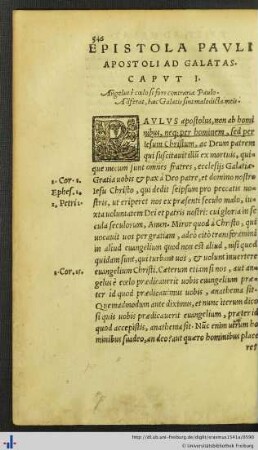 540
EPISTOLA PAVLI
APOSTOLI AD GALATAS.
CAPVT I.
Angelus è cœlo si ferat contraria Paulo
Adferat, hæc Galatis sint maledicta meis.
PAVLVS apostolus, non ab homi
nibus, neq; per hominem, sed per
Iesum Christum, ac Deum patrem
qui suscitauit illū ex mortuis, qui-
que mecum sunt omnes fratres, ecclesijs Galatiæ.
Gratia uobis et pax à Deo patre, et domino nostro
1. Cor. 1.
Iesu Christo, qui dedit seipsum pro peccatis no-
Ephes. 1.
stris, ut eriperet nos ex præsenti seculo malo, iu-
1. Petri 1.
xta uoluntatem Dei et patris nostri: cui gloria in se
cula seculorum, Amen. Miror quod à Christo, qui
uocauit uos per gratiam, adeò citò transferimini
in aliud euangelium quod non est aliud, nisi quod
quidam sunt, qui turbant uos, et uolunt inuertere
2. Cor. 11.
euangelium Christi. Cæterum etiam si nos, aut an-
gelus è cœlo prædicauerit uobis euangelium præ-
ter id quod prædicauimus uobis, anathema sit.
Quemadmodum ante diximus, et nunc iterum dico
si quis uobis prædicauerit euangelium, præter id
quod accepistis, anathema sit. Nūc enim utrum ho
minibus suadeo, an deo? aut quæro hominibus place
ret
© Universitätsbibliothek Freiburg